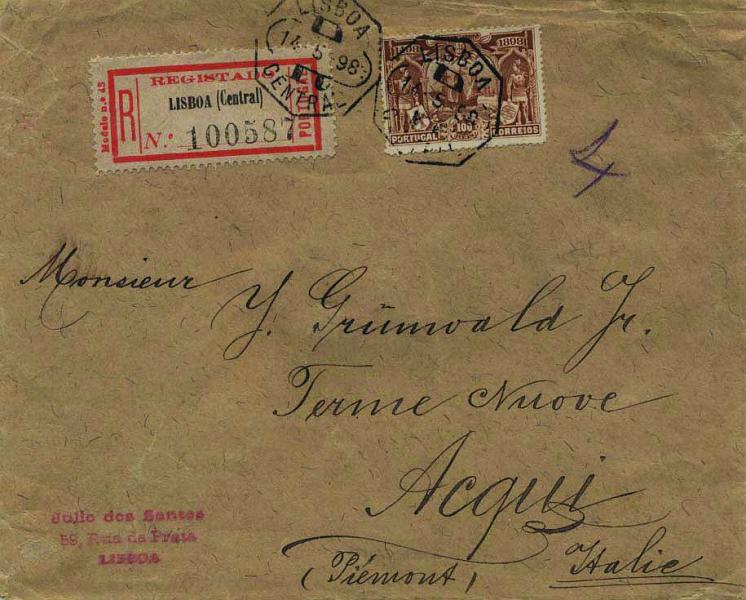 LISBOA
14·5·98
CENTRAL
REGISTADO
LISBOA (Central)
R
N.º 100587
Modelo n.º 43
1498 1898
LISBOA
PORTUGAL 100 CORREIOS
4
Monsieur
J. Grünwald Jr.
Terme Nuove
Acqui
(Piémont) Italie
Julio dos Santos
59, Rua da Prata
LISBOA